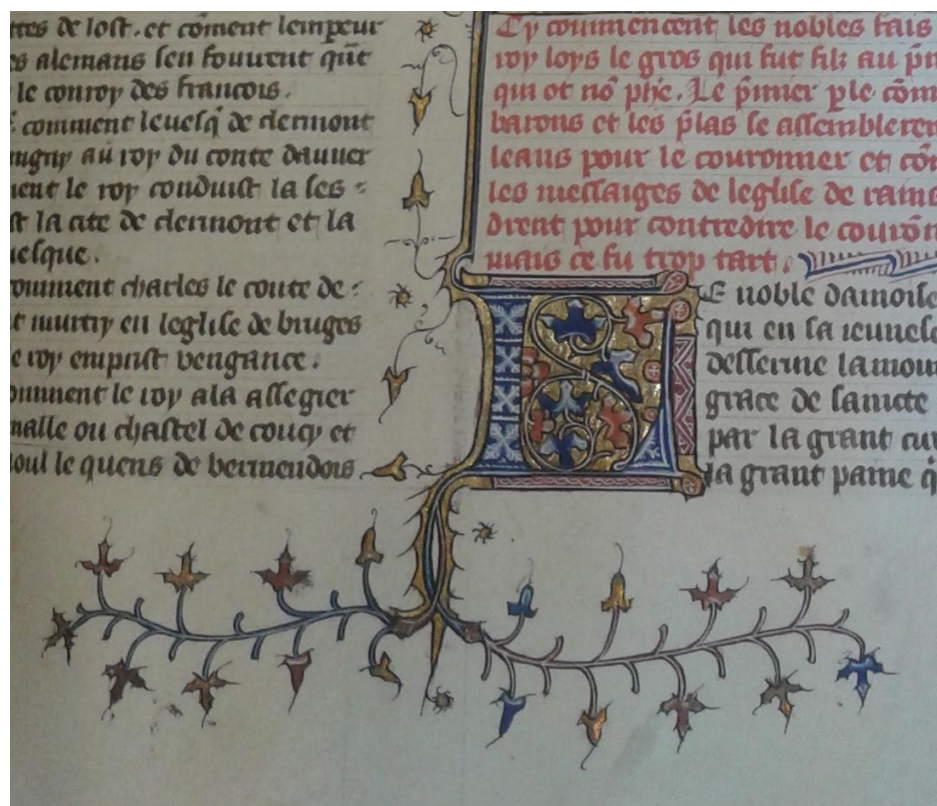 ttes de lost. et cōment lempeur
es alemans sen fouuent qūt
le conroy des francois.
comment leuesq̄ de clermont
au roy du conte dauuer
nent le roy conduist la ses
st la cite de clermont et la
uesque.
omment charles le conte de
t murtry en leglise de bruges
e roy emprist vengance.
omment le roy ala assegier
malle ou chastel de coucy et
oul le quens de vermendois
Cy commencent les nobles fais
roy loys le gros qui fut filz au p̄m
qui ot nō ph̄e. Le p̄mier ple cōm
barons et les p̄las se assembleren
leans pour le couronner et cōm
les messaiges de leglise de rains
drent pour contredire le courōn
mais ce fu trop tart.
LE noble damoise
qui en sa ieunesc
desserine lamour
grace de saincte
par la grant cur
la grant paine q̄